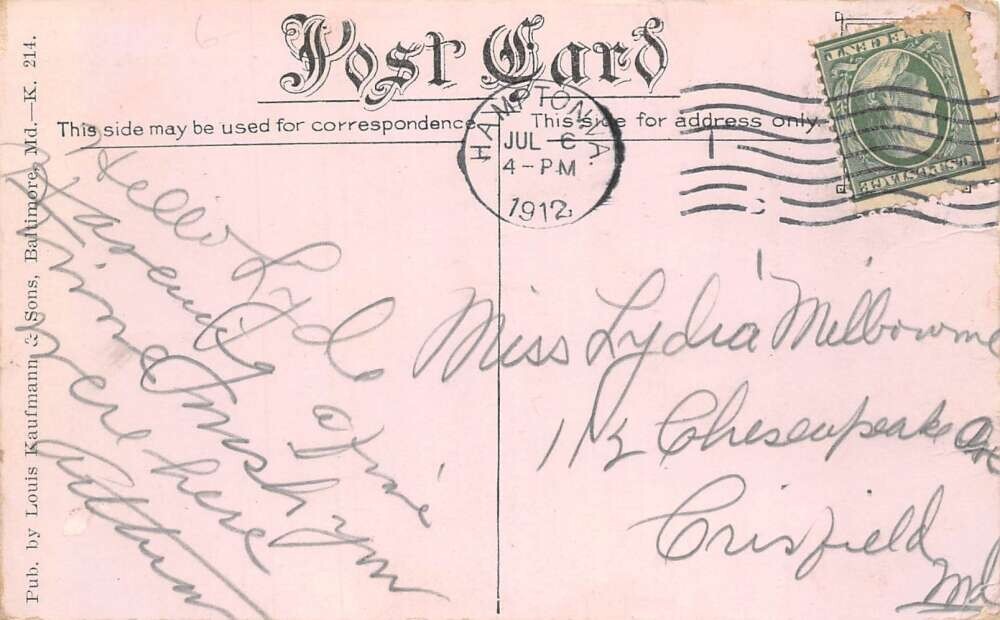 Post Card
This side may be used for correspondence
This side for address only
HAMPTON VA.
JUL 6
4-PM
1912
U.S. POSTAGE
Pub. by Louis Kaufmann & Sons, Baltimore, Md.—K. 214.
Hello Lyd
a I'me
Haveing a
Fine
I wish you
were here
Arthur
Miss Lydia Milbourne
113 Cheseapeake Ave
Crisfield
Md